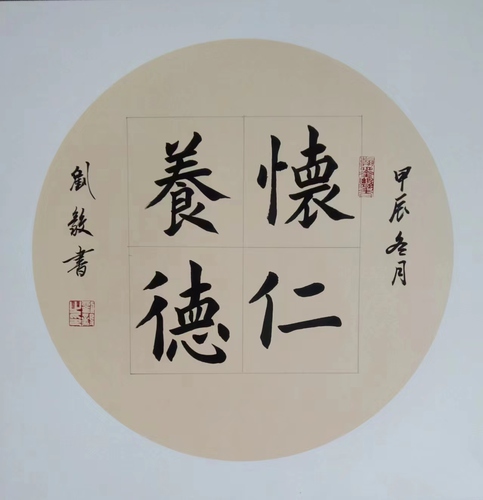 甲辰冬月
懷仁
養德
劉毅書